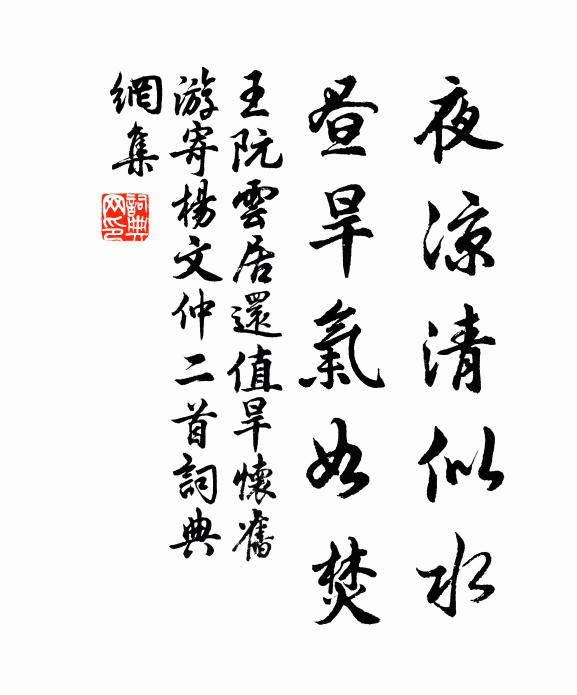 夜涼清似水
晝旱氣如焚
王阮雲居還值旱懷舊
游寄楊文仲二首詞典
網集
詞典
网印